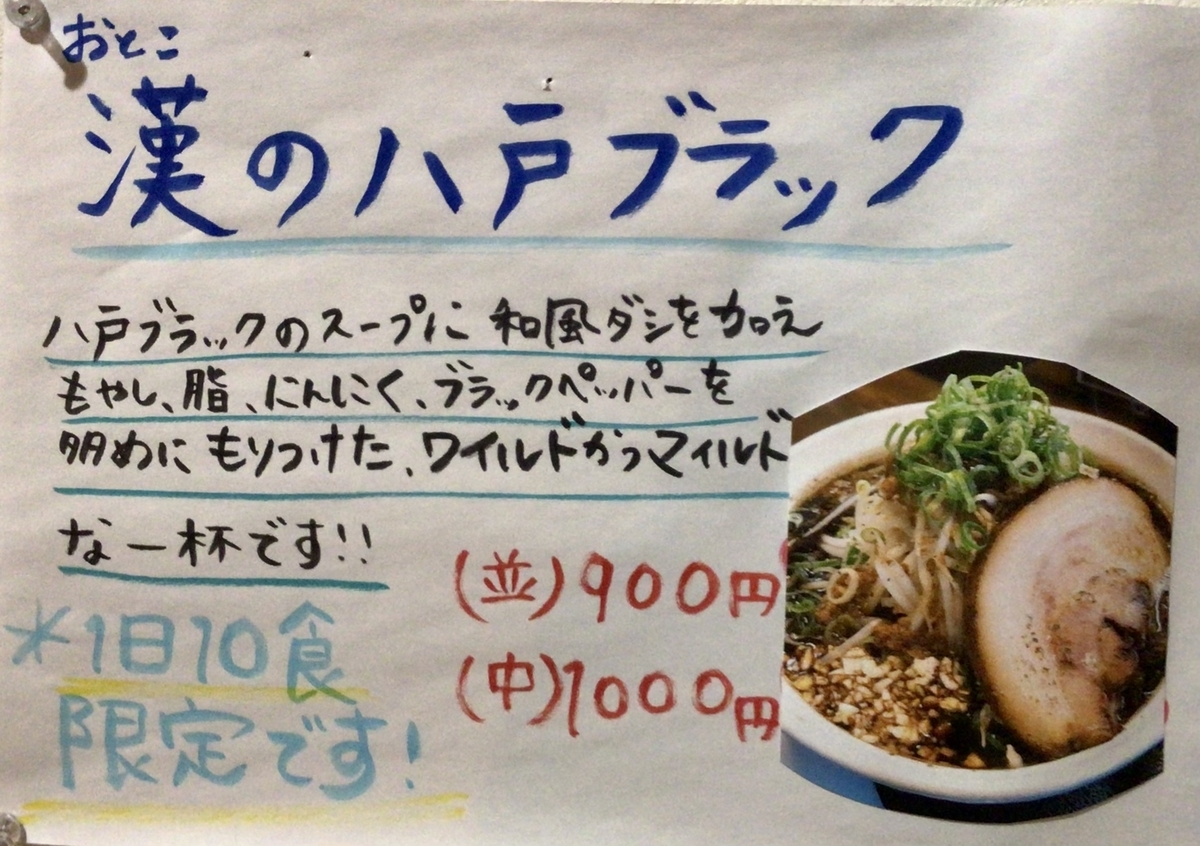 おとこ
漢の八戸ブラック
八戸ブラックのスープに和風ダシを加え
もやし、脂、にんにく、ブラックペッパーを
多めにもりつけた、ワイルドかつマイルド
な一杯です!!
(並)900円
(中)1000円
*1日10食
限定です!